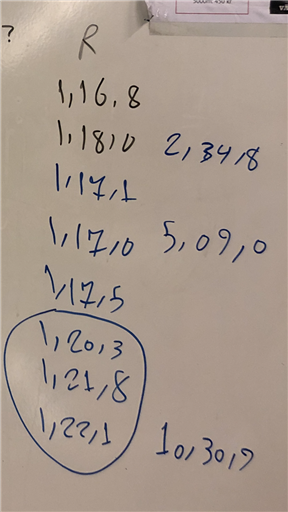 5000m: 450 kr
?
R
1,16,8
1,18,0 2,34,8
1,17,1
1,17,0 5,09,0
1,17,5
1,20,3
1,21,8
1,22,1 10,30,9